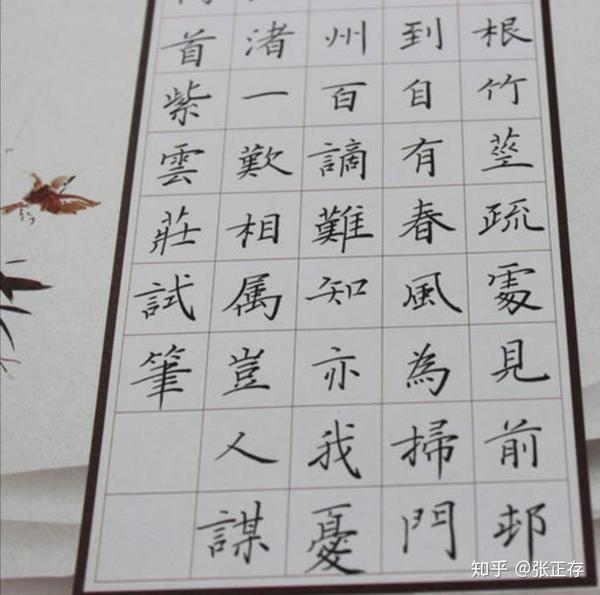 根竹莖疏處見前邨
到自有春風為掃門
州百謫難知亦我憂
渚一歎相属豈人謀
首紫雲莊試筆
知乎 @张正存